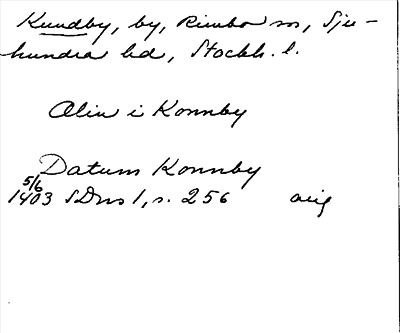 Kundby, by, Rimbo sn, Sju-
hundra hd, Stockh. l.
Alin i Konnby
Datum Konnby
5/6
1403 SDns 1, s. 256 orig